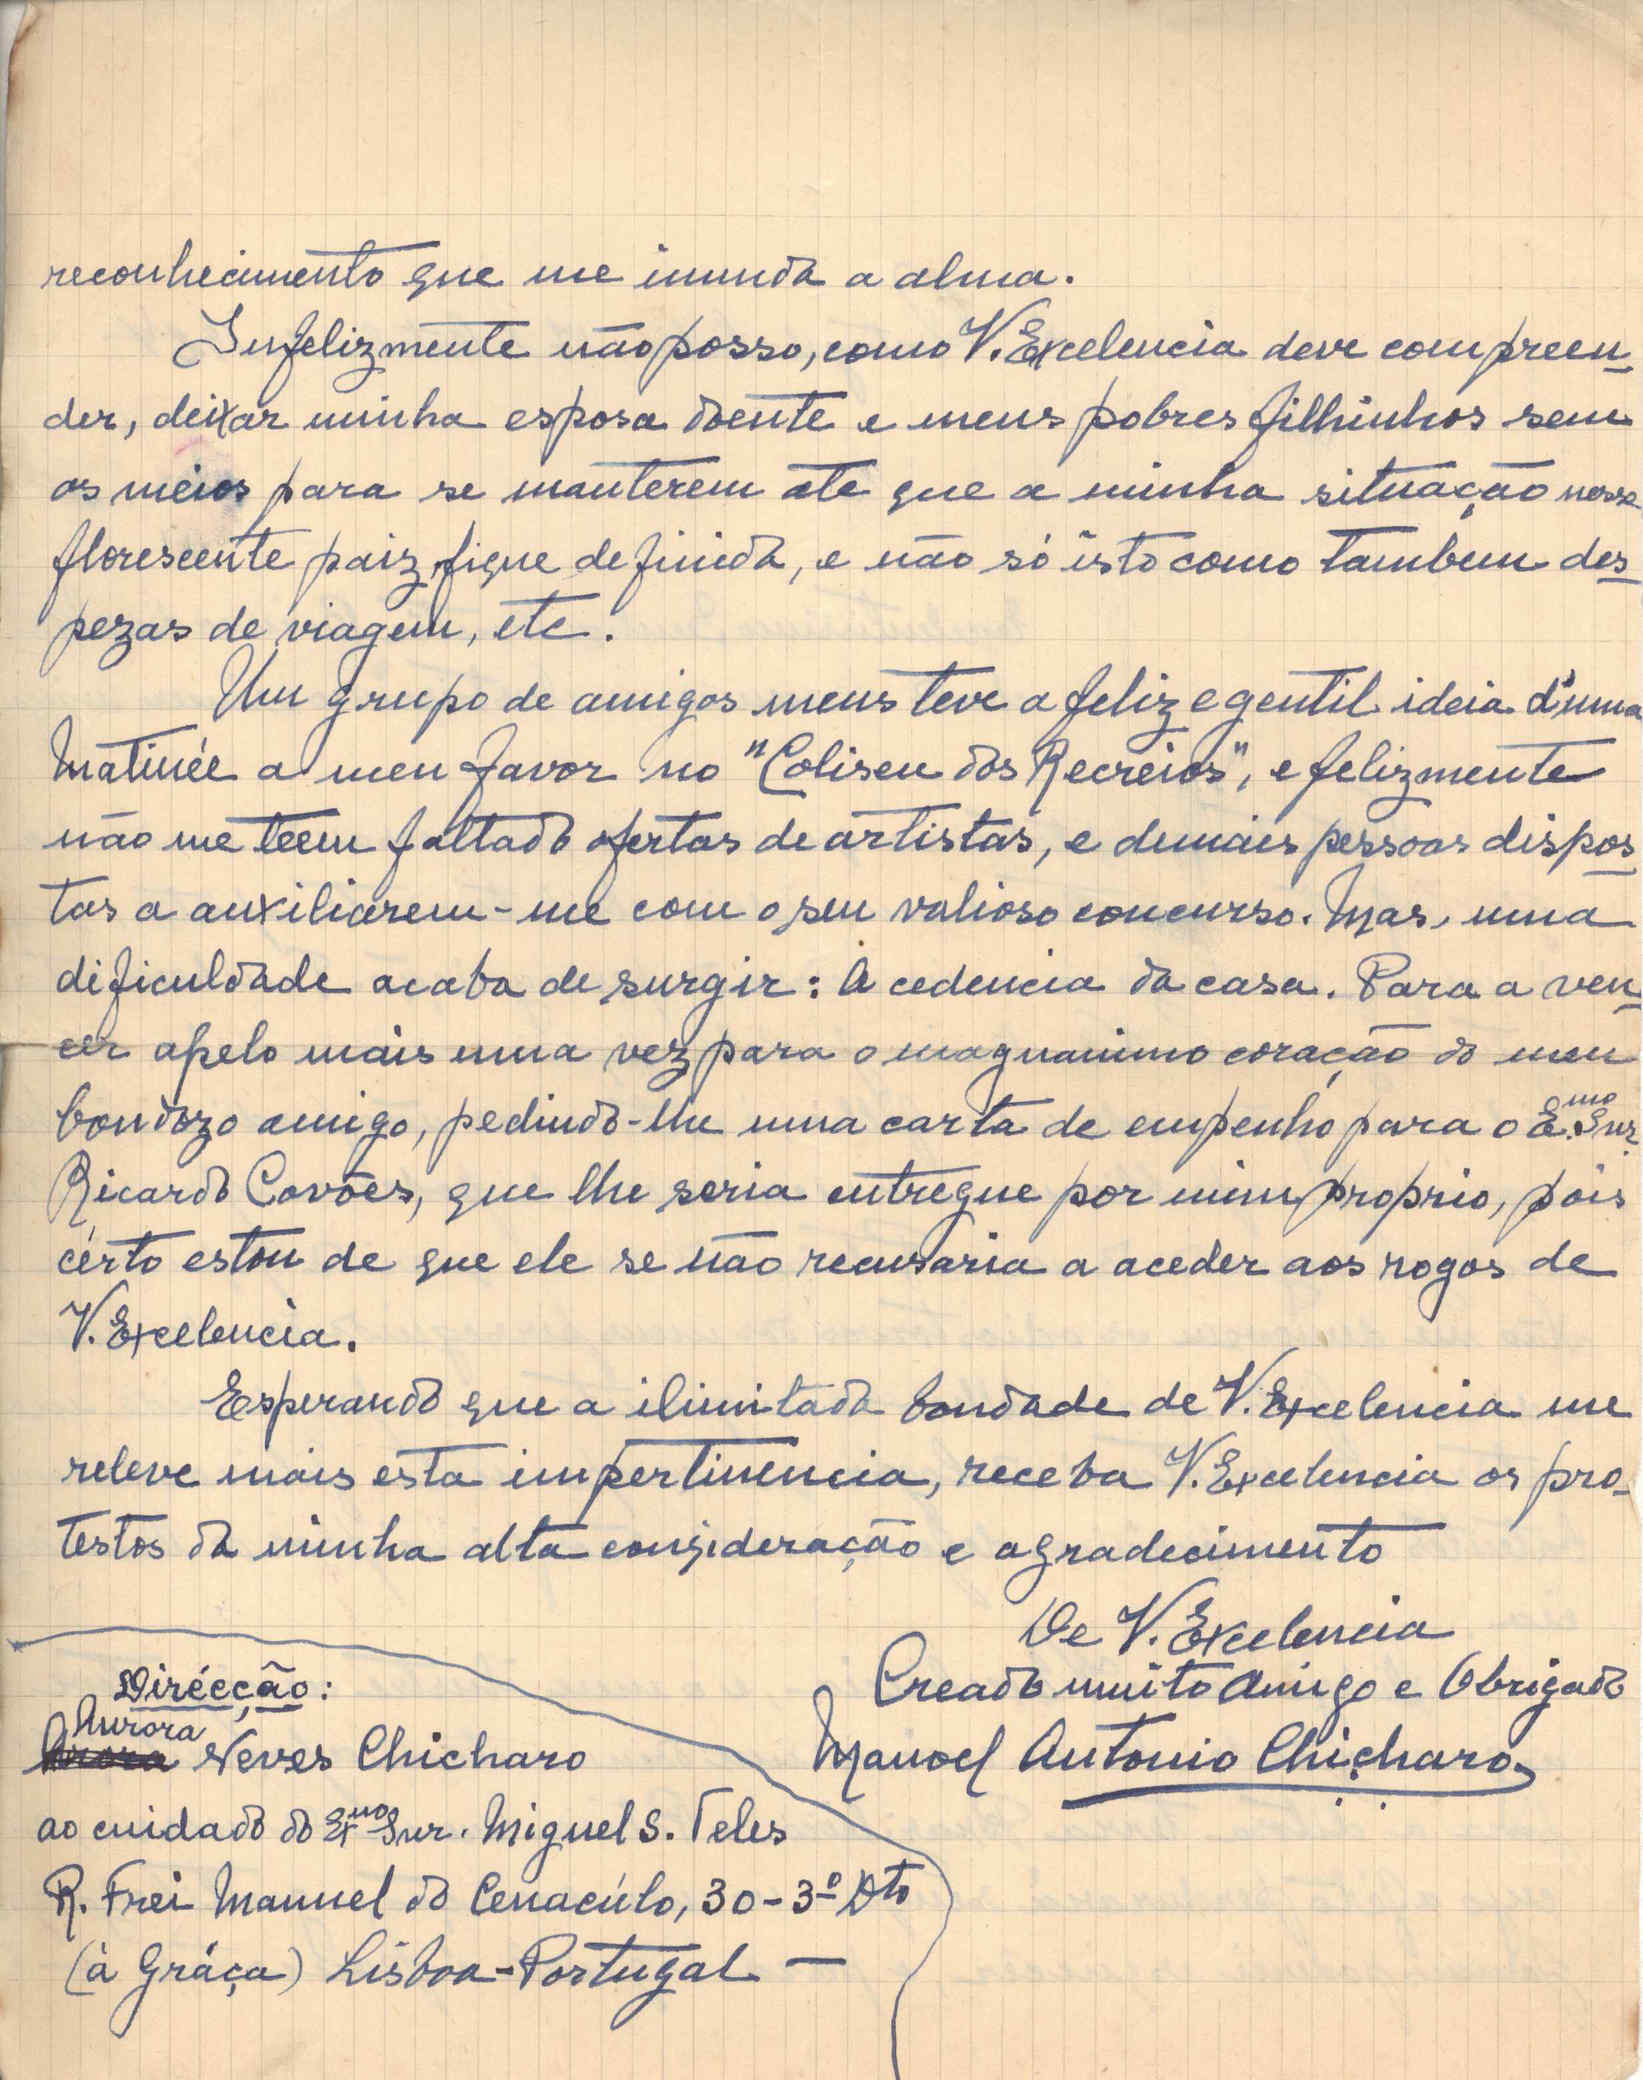 reconhecimento que me inunda a alma.
Infelizmente não posso, como V. Excelencia deve compreen-
der, deixar minha esposa doente e meus pobres filhinhos sem
os meios para se manterem ate que a minha situação nesse
florescente paiz, fique definida, e não só isto como tambem des-
pezas de viagem, etc.
Um grupo de amigos meus teve a feliz e gentil ideia d'uma
Matinée a meu favor no "Coliseu dos Recreios", e felizmente
não me teem faltado ofertas de artistas, e demais pessoas dispos-
tas a auxiliarem-me com o seu valioso concurso. Mas, uma
dificuldade acaba de surgir: A cedencia da casa. Para a ven-
cer apelo mais uma vez para o magnanimo coração do meu
bondozo amigo, pedindo-lhe uma carta de empenho para o E.mo Snr.
Ricardo Covões, que lhe seria entregue por mim proprio, pois
certo estou de que ele se não recusaria a aceder aos rogos de
V. Excelencia.
Esperando que a ilimitada bondade de V. Excelencia me
releve mais esta impertinencia, receba V. Excelencia os pro-
testos da minha alta consideração e agradecimento
De V. Excelencia
Creado muito Amigo e Obrigado
Manoel Antonio Chicharo
Dirécção:
Aurora Neves Chicharo
ao cuidado do Exmo Snr. Miguel S. Teles
R. Frei Manuel do Cenacúlo, 30-3º Dto
(à Gráça) Lisboa-Portugal —